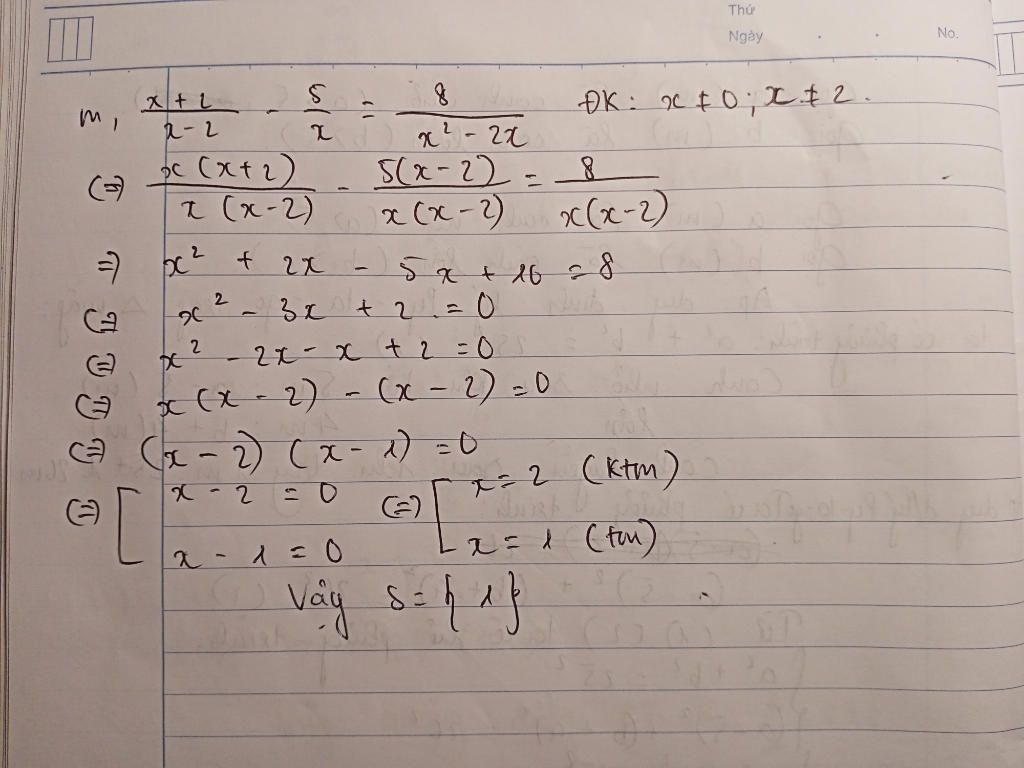 Thứ
Ngày . . No.
m, (x+2)/(x-2) - 5/x = 8/(x² - 2x) ĐK: x ≠ 0; x ≠ 2.
(=) x(x+2)/x(x-2) - 5(x-2)/x(x-2) = 8/x(x-2)
=) x² + 2x - 5x + 10 = 8
(=) x² - 3x + 2 = 0
(=) x² - 2x - x + 2 = 0
(=) x(x - 2) - (x - 2) = 0
(=) (x - 2)(x - 1) = 0
(=) [ x - 2 = 0 (=) [ x = 2 (ktm)
x - 1 = 0 x = 1 (tm)
Vậy S = {1}